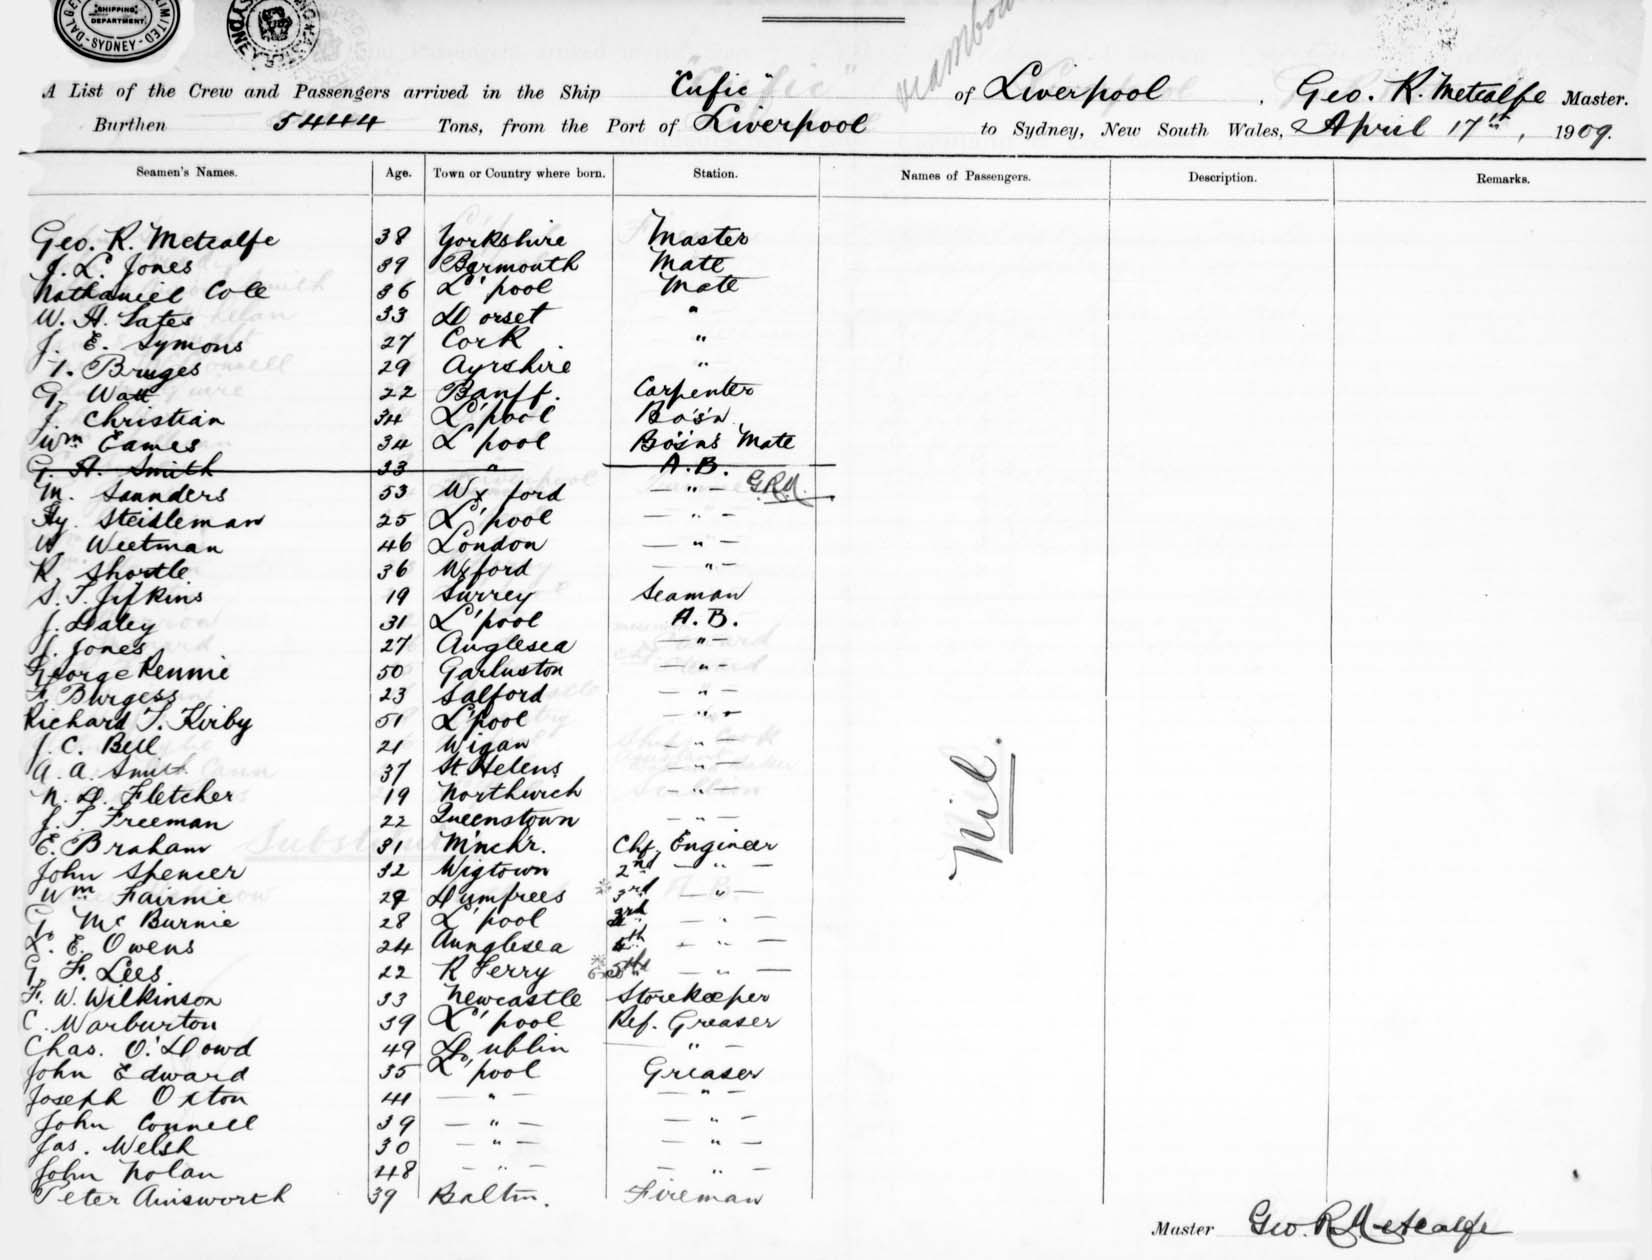 SHIPPING
DEPARTMENT
SYDNEY
A List of the Crew and Passengers arrived in the Ship "Cufic" of Liverpool, Geo. R. Metcalfe Master.
Burthen 5444 Tons, from the Port of Liverpool to Sydney, New South Wales, April 17th, 1909.
Seamen's Names. Age. Town or Country where born. Station. Names of Passengers. Description. Remarks.
Geo. R. Metcalfe 38 Yorkshire Master
J. L. Jones 39 Barmouth Mate
Nathaniel Cole 36 L'pool Mate
W. H. 33 Dorset "
J. E. Symons 27 Cork "
Bruges 29 Ayrshire "
G. Watt 22 Banff. Carpenter
J. Christian 34 L'pool Bo's'n
Wm Eames 34 L'pool Bo's'ns Mate
G. A. Smith 33 " A.B.
M. Saunders 53 Wxford — " — G.R.M.
Hy. Steidleman 25 L'pool — " —
W. Weetman 46 London — " —
R. Shortle 36 Wxford — " —
S. T. Jifkins 19 Surrey Seaman
J. Daley 31 L'pool A.B.
J. Jones 27 Anglesea — " —
George Rennie 50 Garluston — " —
Burgess 23 Salford — " —
Richard T. Kirby 51 L'pool — " —
J. C. Bell 21 Wigan — " —
A. A. Smith 37 St. Helens — " —
N. D. Fletcher 19 Northwich — " —
J. T. Freeman 22 Queenstown — " —
E. Braham 31 M'nchr. Chf. Engineer
John Spencer 32 Wigtown 2nd — " —
Wm Fairnie 29 Dumfrees 3rd — " —
G. McBurnie 28 L'pool 3rd — " —
L. E. Owens 24 Aunglesea 4th — " —
G. F. Lees 22 R Ferry 5th — " —
F. W. Wilkinson 33 Newcastle Storekeeper
C. Warburton 39 L'pool Ref. Greaser
Chas. O'Dowd 49 Dublin — " —
John Edward 35 L'pool Greaser
Joseph Oxton 41 — " — — " —
John Connell 39 — " — — " —
Jas. Welsh 30 — " — — " —
John Nolan 48 — " — — " —
Peter Ainsworth 39 Baltm. Fireman
Nil.
Master Geo. R. Metcalfe